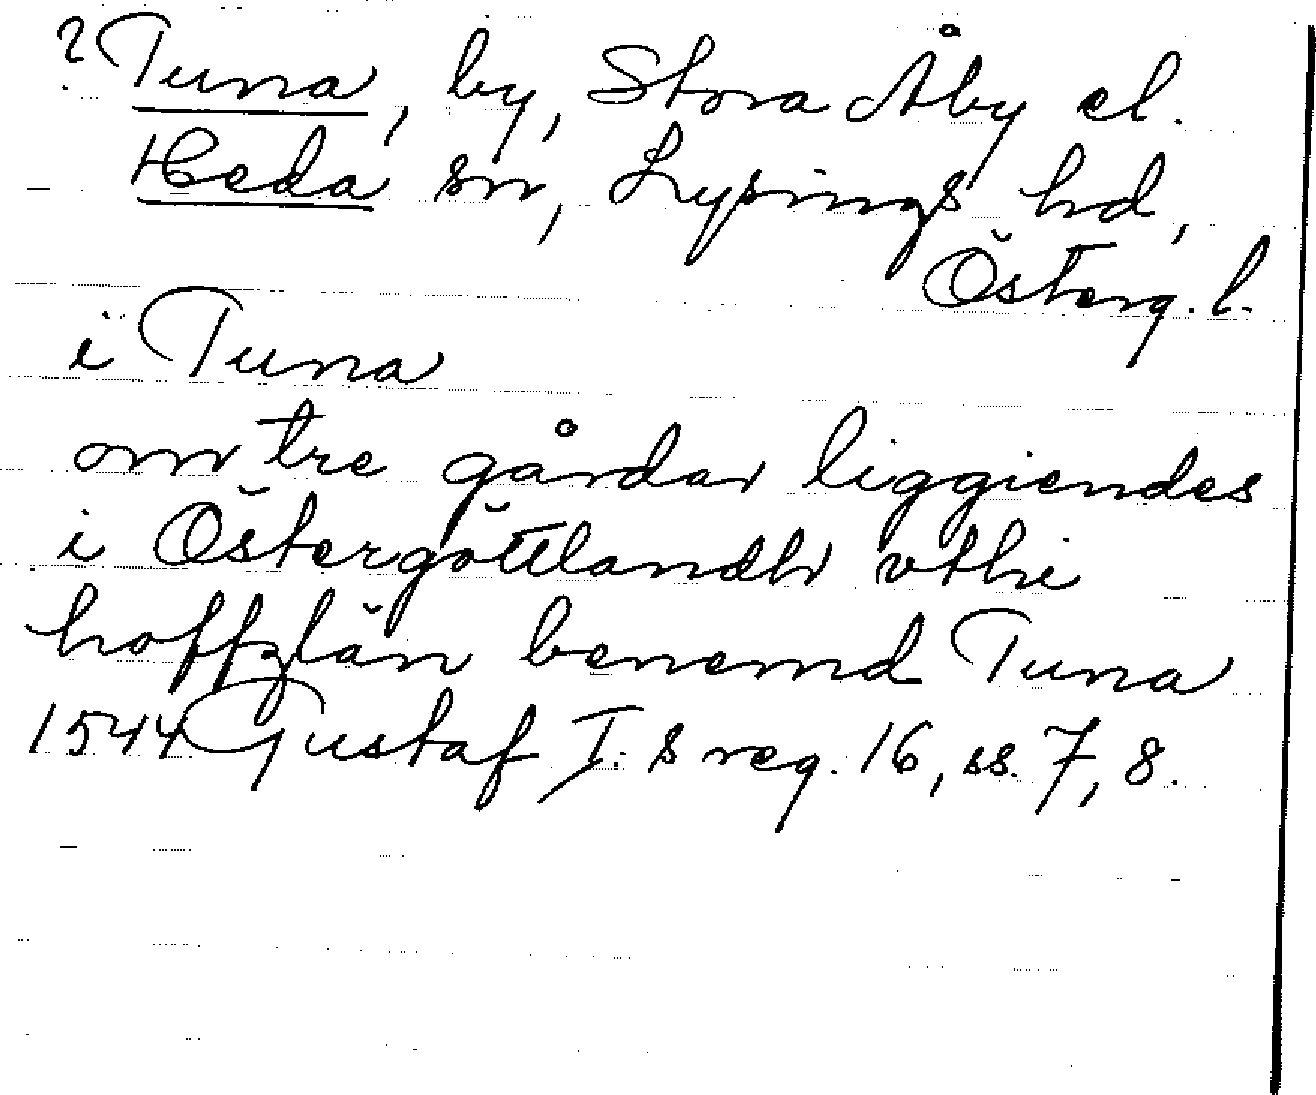 ? Tuna, by, Stora Åby el.
Heda sn, Lysings hd,
Österg. l.
i Tuna
om tre gårdar liggiendes
i Östergöttlandh vthi
hoffzlän benemd Tuna
1544 Gustaf I:s reg. 16, ss. 7, 8.